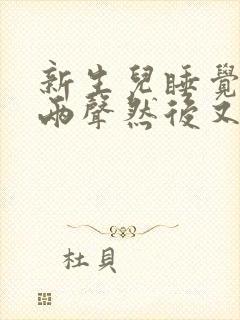 新生兒睡覺
兩聲然後又
杜貝